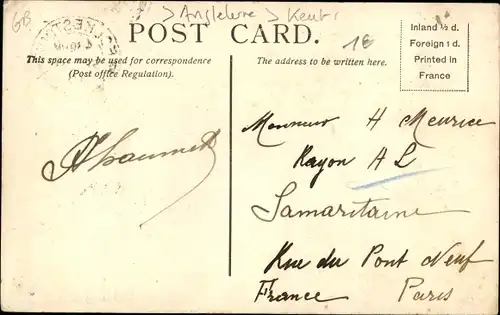 GB
> Angleterre > Kent
POST CARD.
1€
Inland ½ d.
Foreign 1 d.
Printed in
France
This space may be used for correspondence
(Post office Regulation).
The address to be written here.
Monsieur H Meurice
Rayon H L
Samaritaine
Rue du Pont Neuf
France Paris